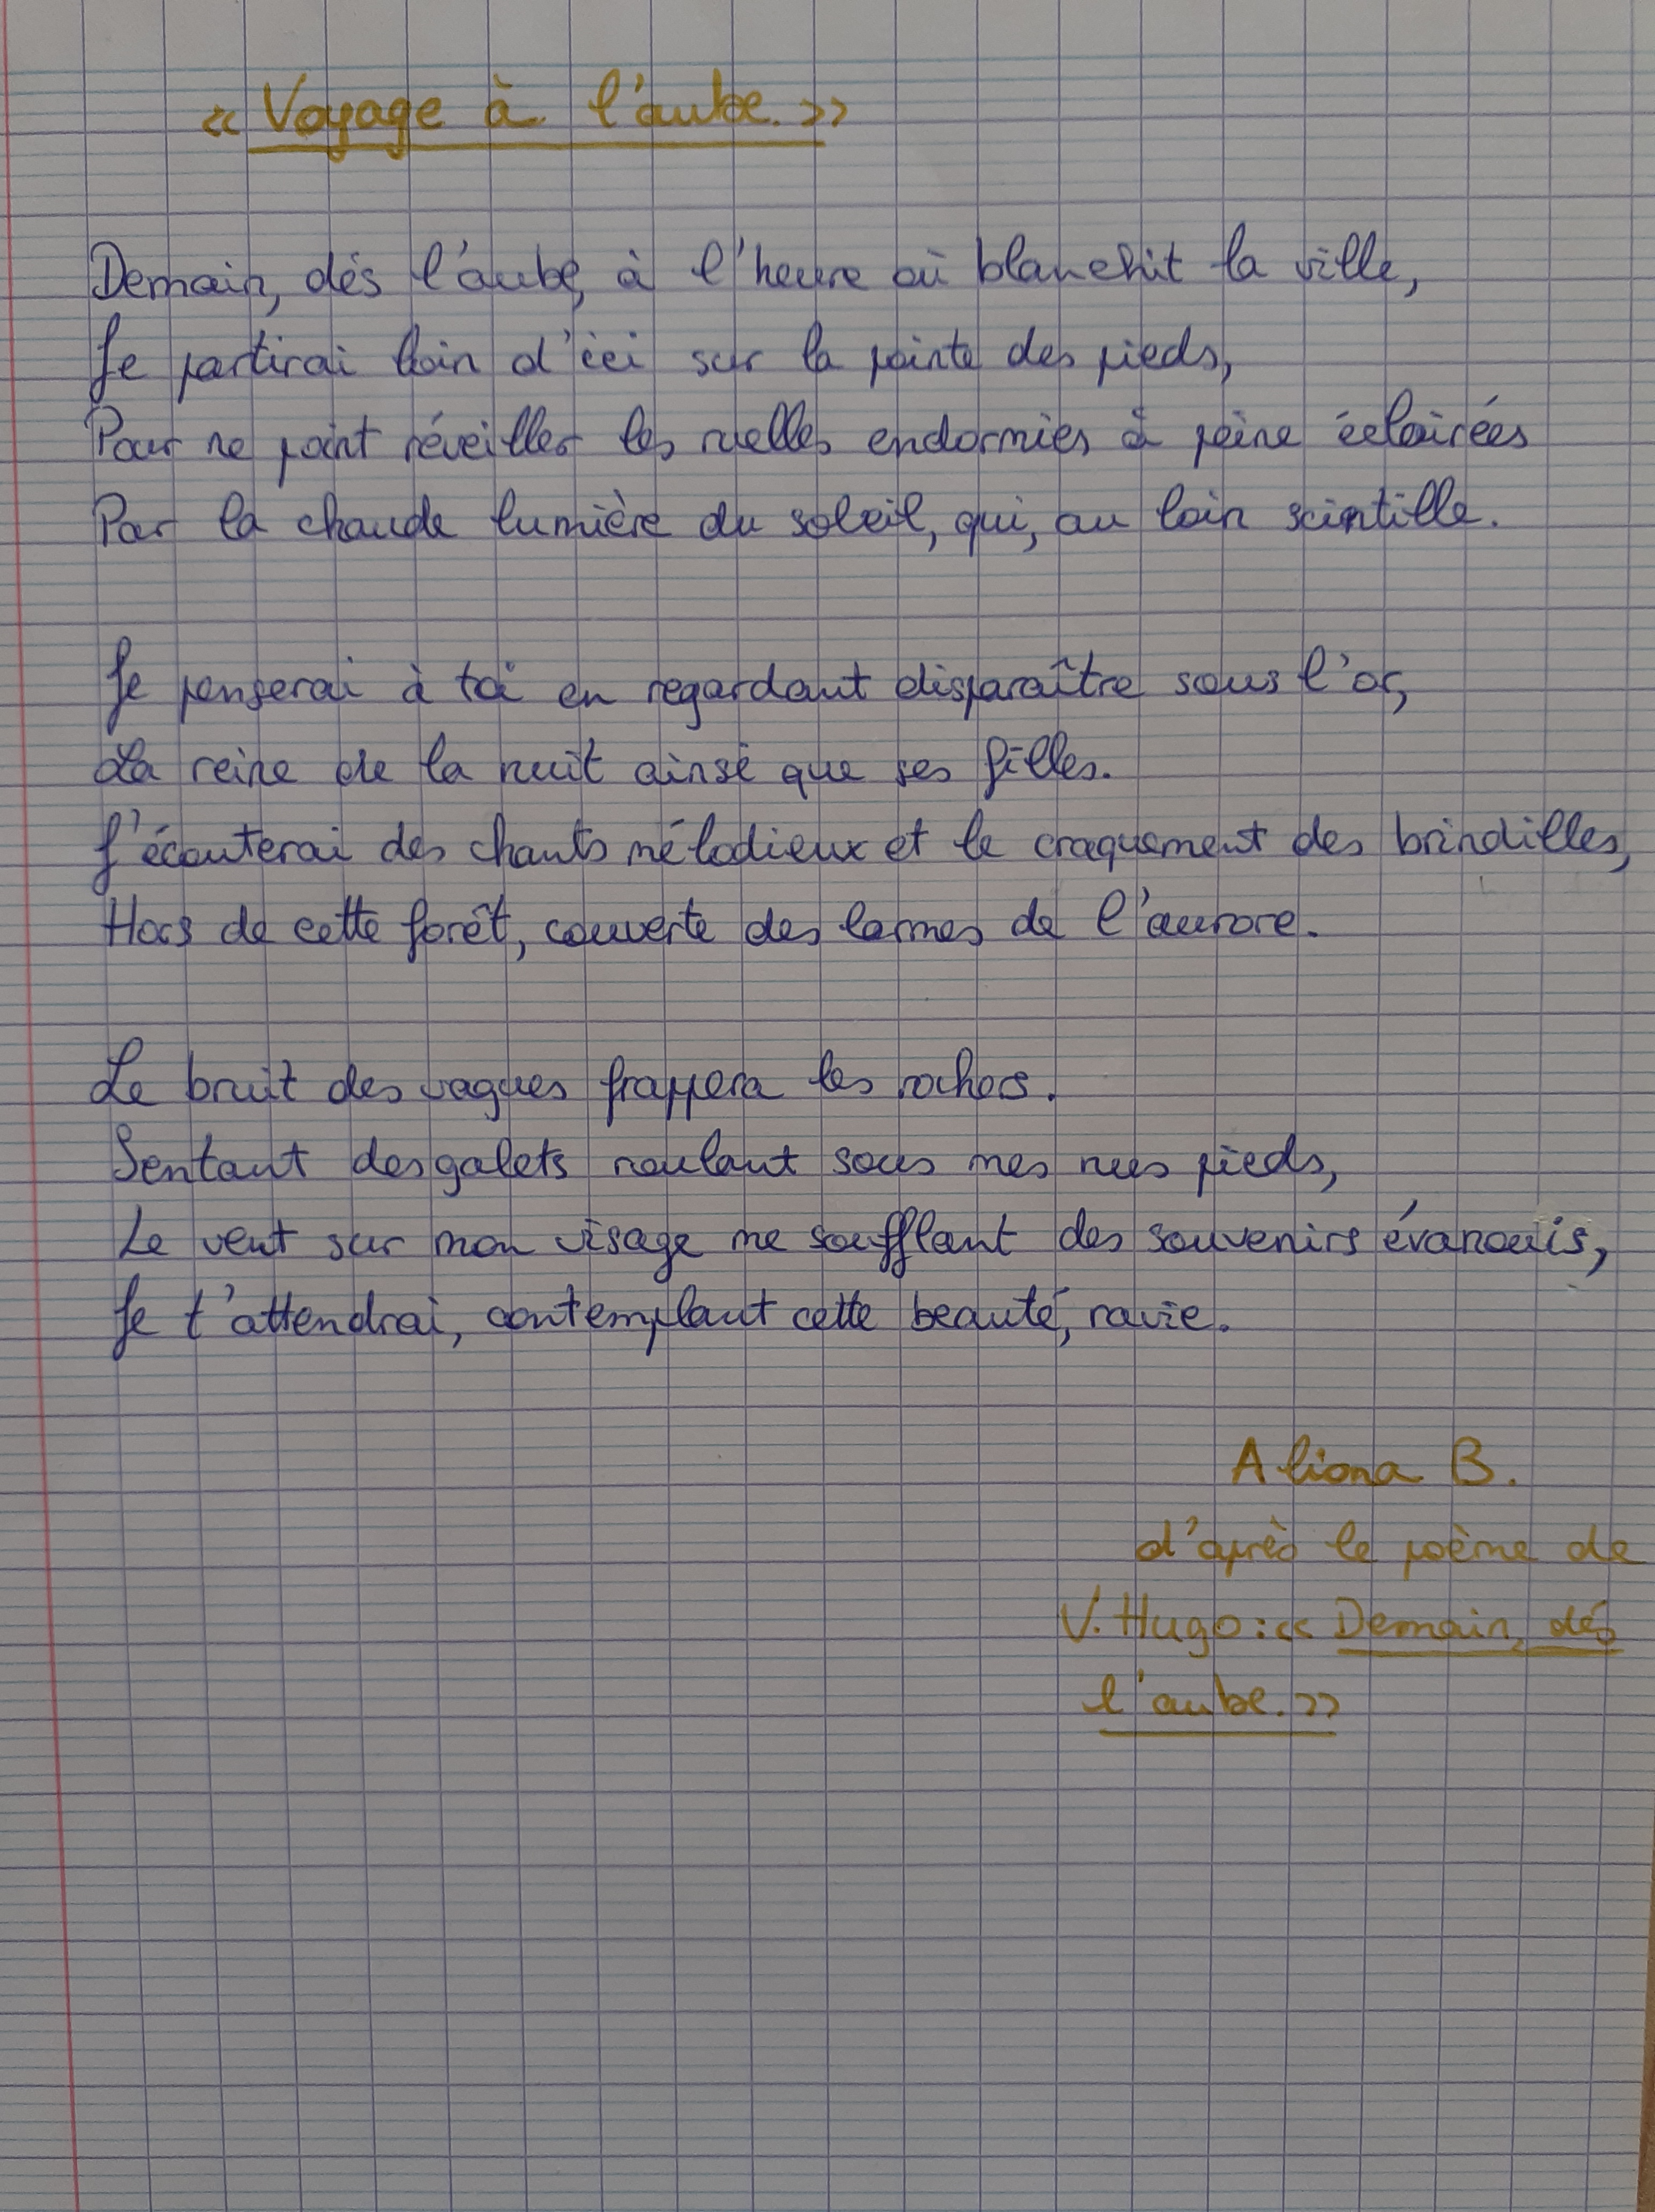 « Voyage à l'aube. »
Demain, dés l'aube, à l'heure où blanchit la ville,
Je partirai loin d'ici sur la pointe des pieds,
Pour ne point réveiller les ruelles endormies à peine éclairées
Par la chaude lumière du soleil, qui, au loin scintille.
Je penserai à toi en regardant disparaître sous l'or,
La reine de la nuit ainsi que ses filles.
J'écouterai des chants mélodieux et le craquement des brindilles,
Hors de cette forêt, couverte des larmes de l'aurore.
Le bruit des vagues frappera les rochers.
Sentant des galets roulant sous mes nus pieds,
Le vent sur mon visage me soufflant des souvenirs évanouis,
Je t'attendrai, contemplant cette beauté, ravie.
Aliona B.
d'après le poème de
V. Hugo : « Demain, dés
l'aube. »